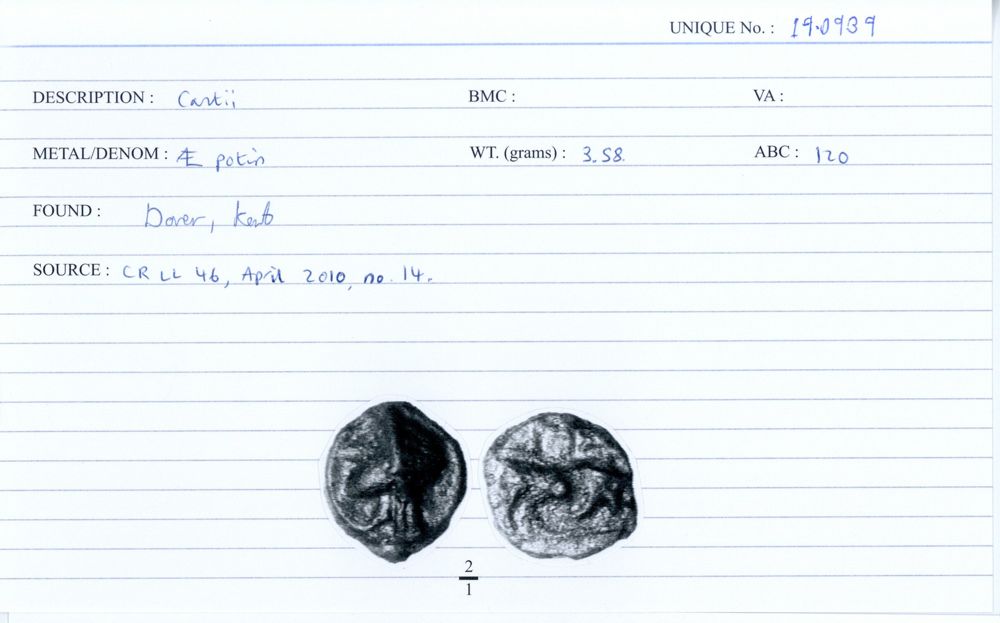 UNIQUE No. : 19.0939
DESCRIPTION : Cantii BMC : VA :
METAL/DENOM : Æ potin WT. (grams) : 3.58. ABC : 120
FOUND : Dover, Kent
SOURCE : CR LL 46, April 2010, no. 14.
2
1